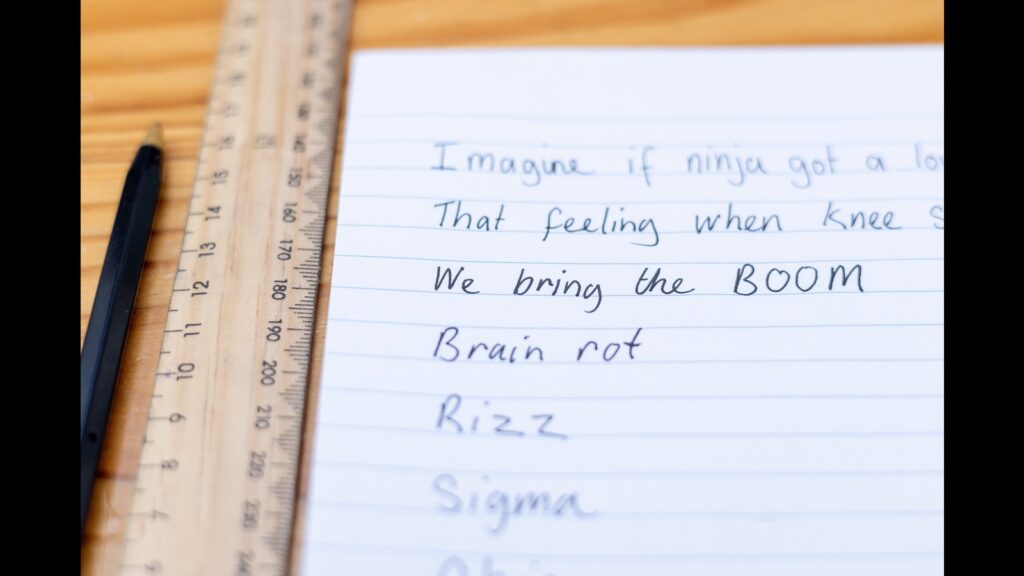 Imagine if ninja got a
That feeling when knee
We bring the BOOM
Brain rot
Rizz
Sigma
16
15
14
13
12
11
10
9
8
7
150
160
170
180
190
200
210
220
230